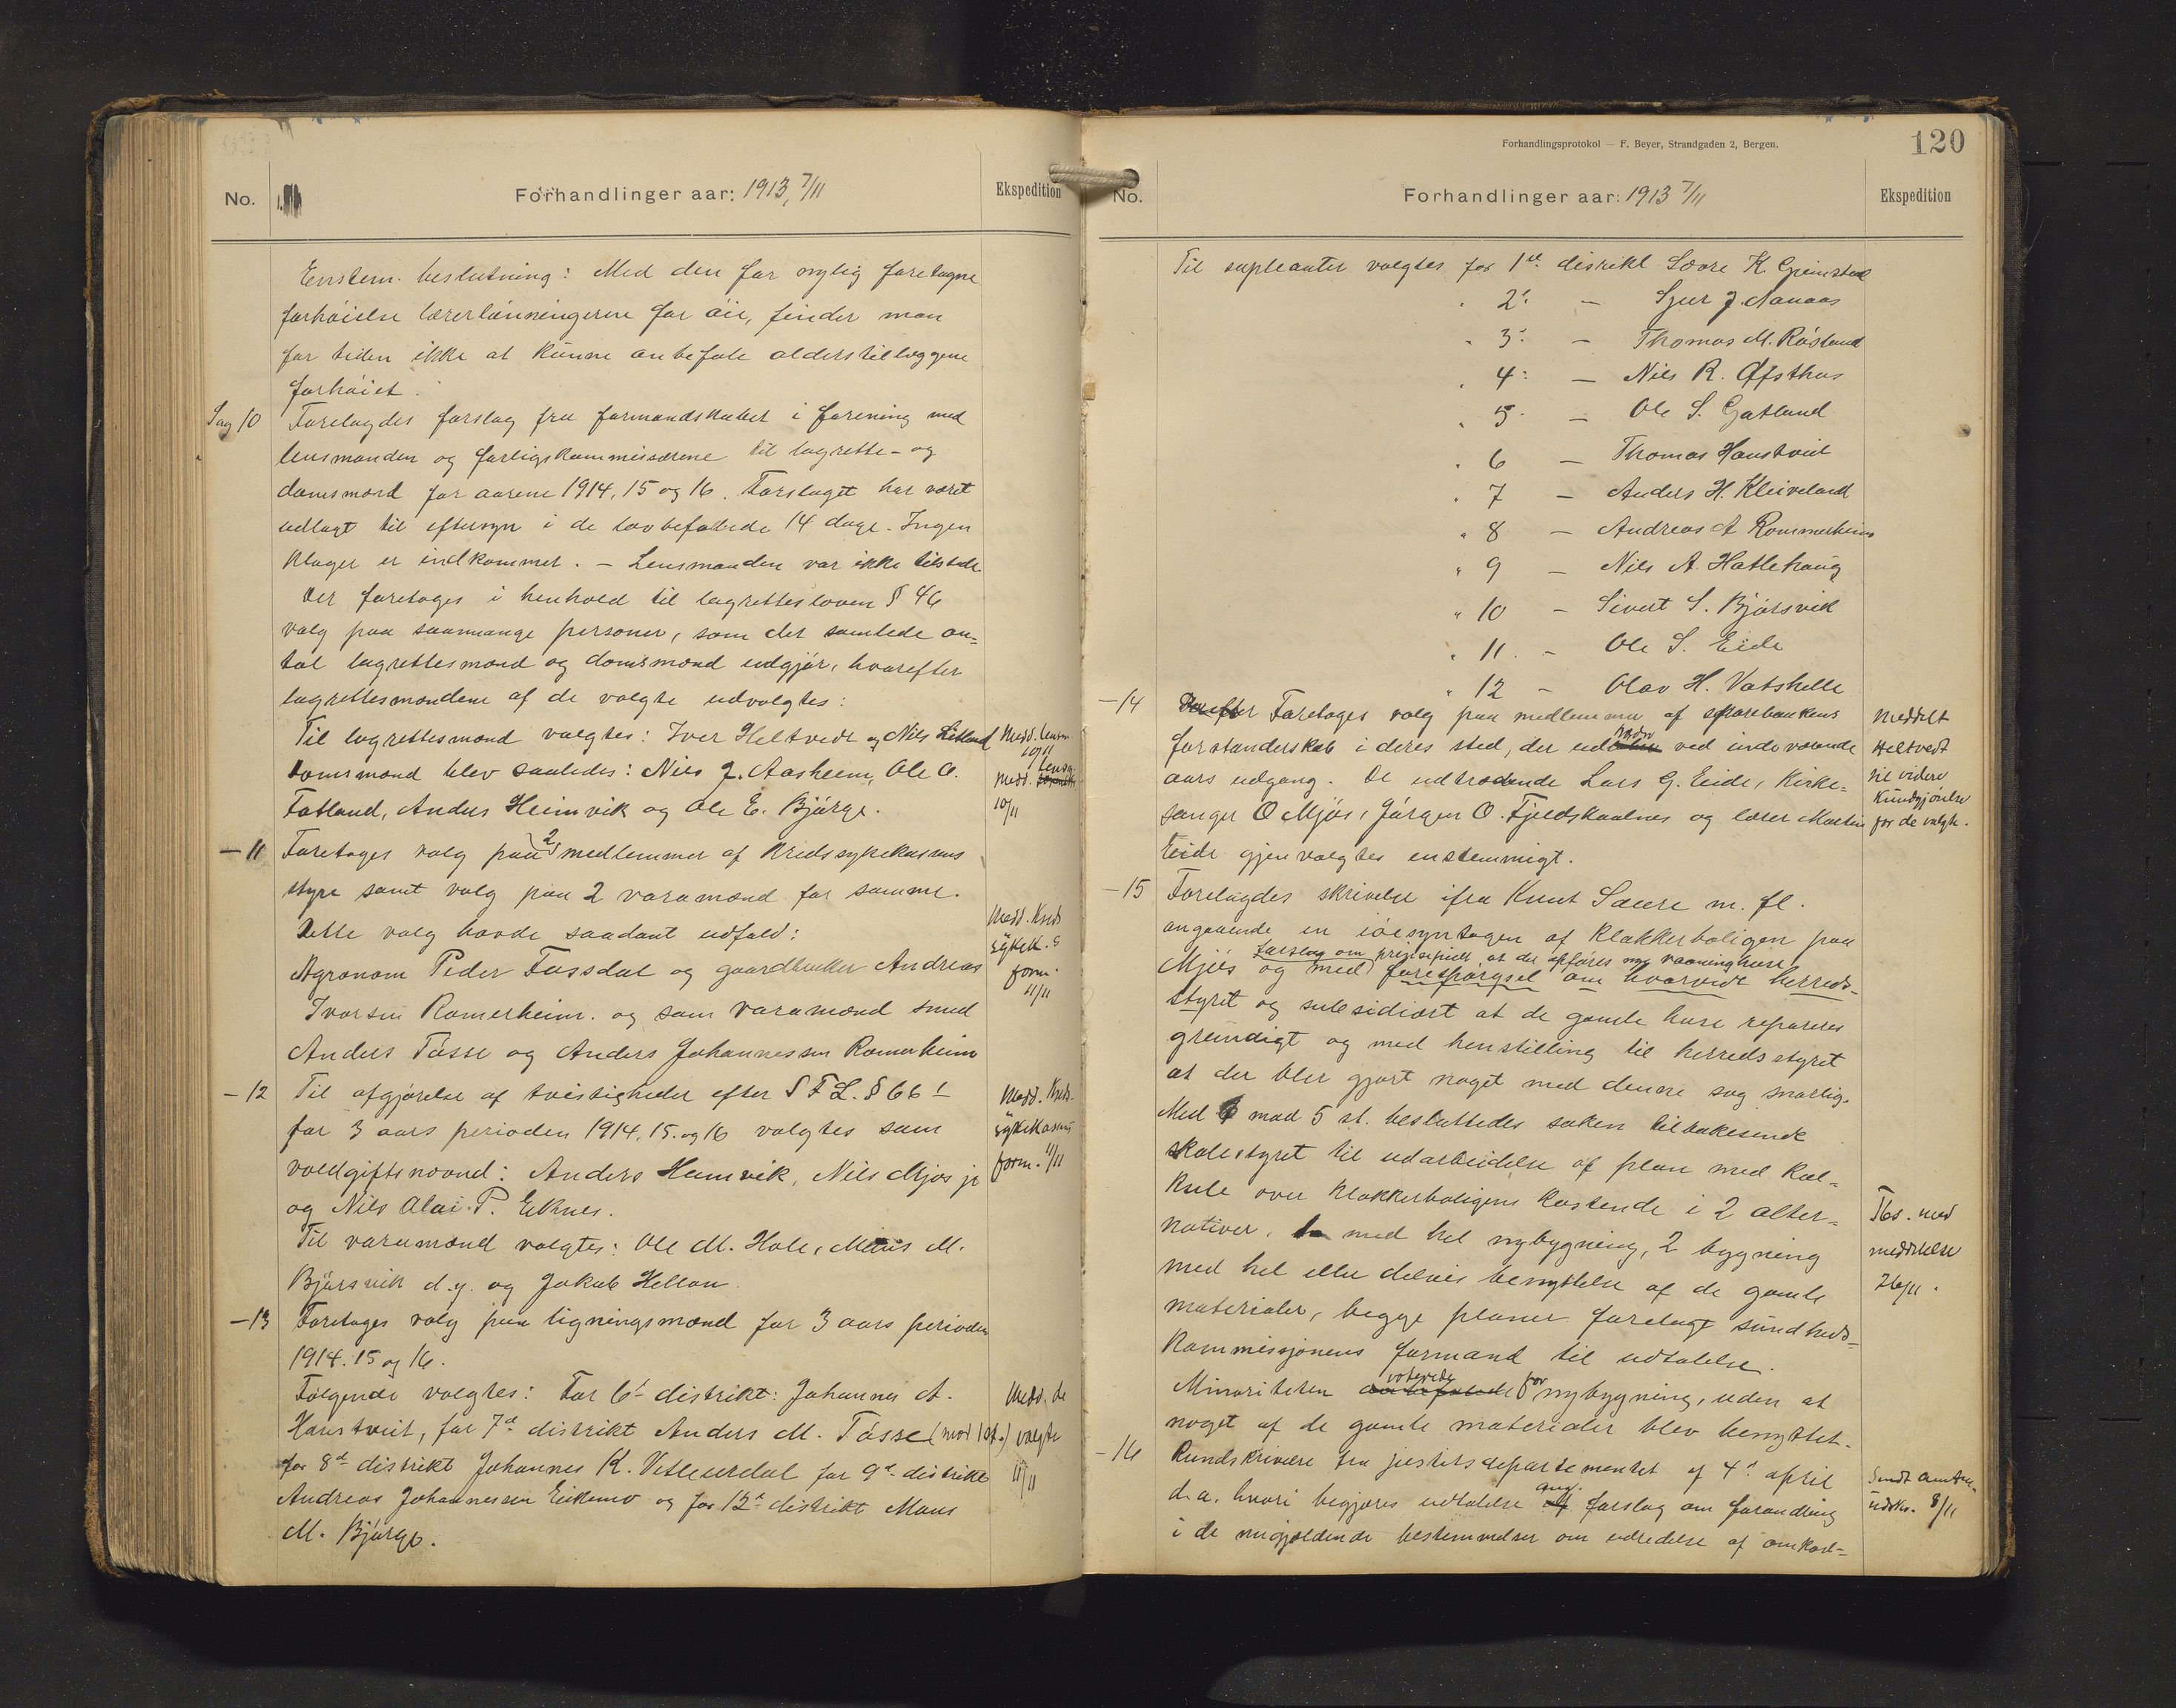 No.
Forhandlinger aar: 1913, 7/11
Ekspedition
Enstem. beslutning: Med den for nylig foretagne
forhöielse lærerlönningerne for öie, finder man
for tiden ikke at kunne anbefale alderstillæggene
forhöiet.
Sag 10
Forelagdes forslag fra formandskabet i forening med
lensmanden og forligskommissærene til lagrette- og
domsmænd for aarene 1914, 15 og 16. Forslaget har været
udlagt til eftersyn i de lovbefalede 14 dage. Ingen
klager er indkommet. – Lensmanden var ikke tilstede
Der foretages i henhold til lagrettesloven § 46
valg paa saamange personer, som det samlede an=
tal lagrettesmænd og domsmænd udgjör, hvorefter
lagrettesmændene af de valgte udvalgtes:
Til lagrettesmænd valgtes: Iver Heltvedt og Nils Litland
Domsmænd blev saaledes: Nils J. Aasheim, Ole O.
Fatland, Anders Heimvik og Ole E. Björge.
Medd. lensm
10/11
Medd. lensm.
10/11
– 11
Foretages valg paa 2 medlemmer af kredssykekassens
styre samt valg paa 2 varamænd for samme.
Dette valg havde saadant udfald:
Agronom Peder Fossdal og gaardbruker Andreas
Ivarsen Romerheim. og som varamænd smed
Anders Tösse og Anders Johannessen Romerheim
Medd. Kreds
sykek. s
form.
11/11
– 12
Til afgjörelse af tvistigheder efter S F L. § 66 1
for 3 aars perioden 1914, 15. og 16 valgtes som
voldgiftsnævnd: Anders Hemvik, Nils Mjøs jr
og Nils Olai P. Eknes.
Til varamænd valgtes: Ole M. Hole, Mons M.
Björsvik d.y. og Jakob Helland
Medd. Kreds-
sykekassens
form. 11/11
– 13
Foretages valg paa ligningsmænd for 3 aars perioden
1914. 15 og 16.
Følgende valgtes: For 6te distrikt: Johannes A.
Hanstveit, for 7de distrikt Anders M. Tösse (mod 1 st.)
for 8de distrikt Johannes K. Vetleurdal for 9de distrikt
Andreas Johannessen Eikemo og for 12te distrikt Mons
M. Björge.
Medd. de
valgte
11/11
Forhandlingsprotokol — F. Beyer, Strandgaden 2, Bergen.
120
No.
Forhandlinger aar: 1913 7/11
Ekspedition
Til supleanter valgtes for 1ste distrikt Sjovre K. Grimstad
" 2. – Sjur J. Nanaas
" 3. – Thomas M. Rösland
" 4. – Nils R. Øfsthus
" 5. – Ole S. Gatland
" 6 – Thomas Hanstveit
" 7 – Anders H. Kleiveland
" 8 – Andreas A Rommerheim
" 9 – Nils A. Hatlehaug
" 10 – Sivert S. Björsvik
" 11. – Ole S. Eide
" 12 – Olav H. Vatshelle
– 14
Derefter Foretages valg paa medlemmer af sparebankens
forstanderskab i deres sted, der udtræder ved indeværende
aars udgang. De udtrædende Lars G. Eide, Kirke=
sanger O Mjös, Jörgen O. Fjeldskaalnes og lærer Martin
Eide gjenvalgtes enstemmigt.
Meddelt
Heltvedt
til videre
Kundgjörelse
for de valgte.
– 15
Forelagdes skrivelse ifra Knut Sæure m. fl.
angaaende en iöiesyntagen af klokkerboligen paa
Forslag om prinsipielt at der opföres ny vaaninghuse
Mjös og med forespörgsel om hvorvidt herreds-
styret og subsidiært at de gamle huse repareres
grundigt og med henstilling til herredsstyret
at der blir gjort noget med denne sag snarlig.
Med 6 mod 5 st. besluttedes saken tilbakesendt
skolestyret til udarbeidelse af plan med kal=
kule over klokkerboligens kostende i 2 alter=
nativer, 1 med hel nybygning, 2 bygning
med hel eller delvis benyttelse af de gamle
materialer, begge planer forelagt sundheds=
kommissjonens formand til udtalelse.
Minoriteten voterede for nybygning, uden at
noget af de gamle materialer blev benyttet.
Tbs. med
meddelelse
26/11.
– 16
Rundskrivere fra justisdepartementet af 4de april
d.a. hvori begjæres udtalelse ang. forslag om forandring
i de nugjældende bestemmelser om udredelse af omkost=
Sendt amtm.
udskr. 8/11